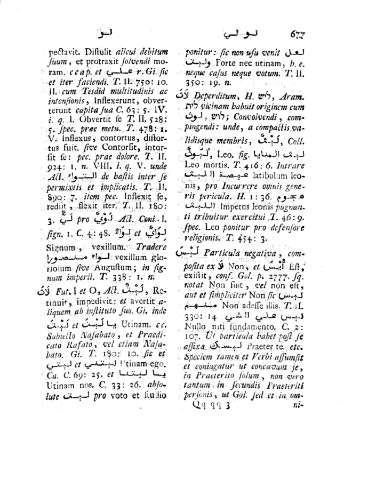 لو
لولي
677
pectavit. Distulit alicui debitum
suum, et protraxit solvendi mo-
ram. c c a p. et على r. Gi. sic
et iter faciendi. T. II. 750: 10.
II. cum Tesdid multitudinis ac
intensionis, Inflexerunt, obver-
terunt capita sua C. 63: 5. IV.
i. q. I. Obvertit se T. II. 528:
5. spec. prae metu. T. 478: 1.
V. inflexus, contortus, distor-
tus fuit, sive Contorsit, intor-
sit se: pec. prae dolore. T. II.
924: 1. n. VIII. i. q. V. unde
Act. de hastis inter se
permixtis et implicatis. T. II.
890: 7. item pec. Inflexit se,
rediit, flexit iter. T. II. 180:
3. pro Act. Conj. I.
sign. 1. C. 4: 48. et
Signum, vexillum. Tradere
vexillum glo-
riosum sive Augustum; in sig-
num imperii. T. 338: 1. n.
Fut. I et O, Act. Re-
tinuit, impedivit: et avertit a-
liquem ab instituto suo. Gi. inde
ليت et يا ليت Utinam. cc.
Subjecto Nasabato, et Praedi-
cato Rafato, vel etiam Nasa-
bato. Gi. T. 180: 10. sic et
ليتي et ليتني Utinam ego.
Ca. C. 69: 25. et يا ليتنا
Utinam nos. C. 33: 26. abso-
lute ليت pro voto et studio
ponitur: sic non usu venit لعل
وليت Forte nec utinam, h. e.
neque casus neque votum. T. II.
350: 19. n.
Deperditum, H. ליש, Aram.
vicinam babuit originem cum
Convolvendi, com-
pingendi: unde, a compactis va-
lidisque membris, ليث, Coll.
ليوث, Leo, fig. ليث المنايا
Leo mortis. T. 416: 6. Intrare
latibulum leo-
nis, pro Incurrere omnis gene-
ris pericula. H. 1: 36. هجوم
الليث Impetus leonis pugnan-
ti tribuitur exercitui T. 46: 9.
Spec. Leo ponitur pro defensore
religionis. T. 454: 3.
ليس Particula negativa, com-
posita ex لا Non, et Est,
exisit, conf. Gol. p. 2777. sq.
notat Non fuit, vel Non est,
aut et simpliciter Non sic ليس
Non sic aedilis mos. T. II.
330: 14 ليس على شي
Nullo niti fundamento. C. 2:
107. Ut particula babet post se
affixa. ليسك Praeter te. etc.
Speciem tamen et Verbi assumsit
et conjugatur ut concavum ج,
in Praeterito solum, non vero
tantum in secundis Praeteriti
personis, ut Gol. sed et in om-
Qq qq 3
ni-